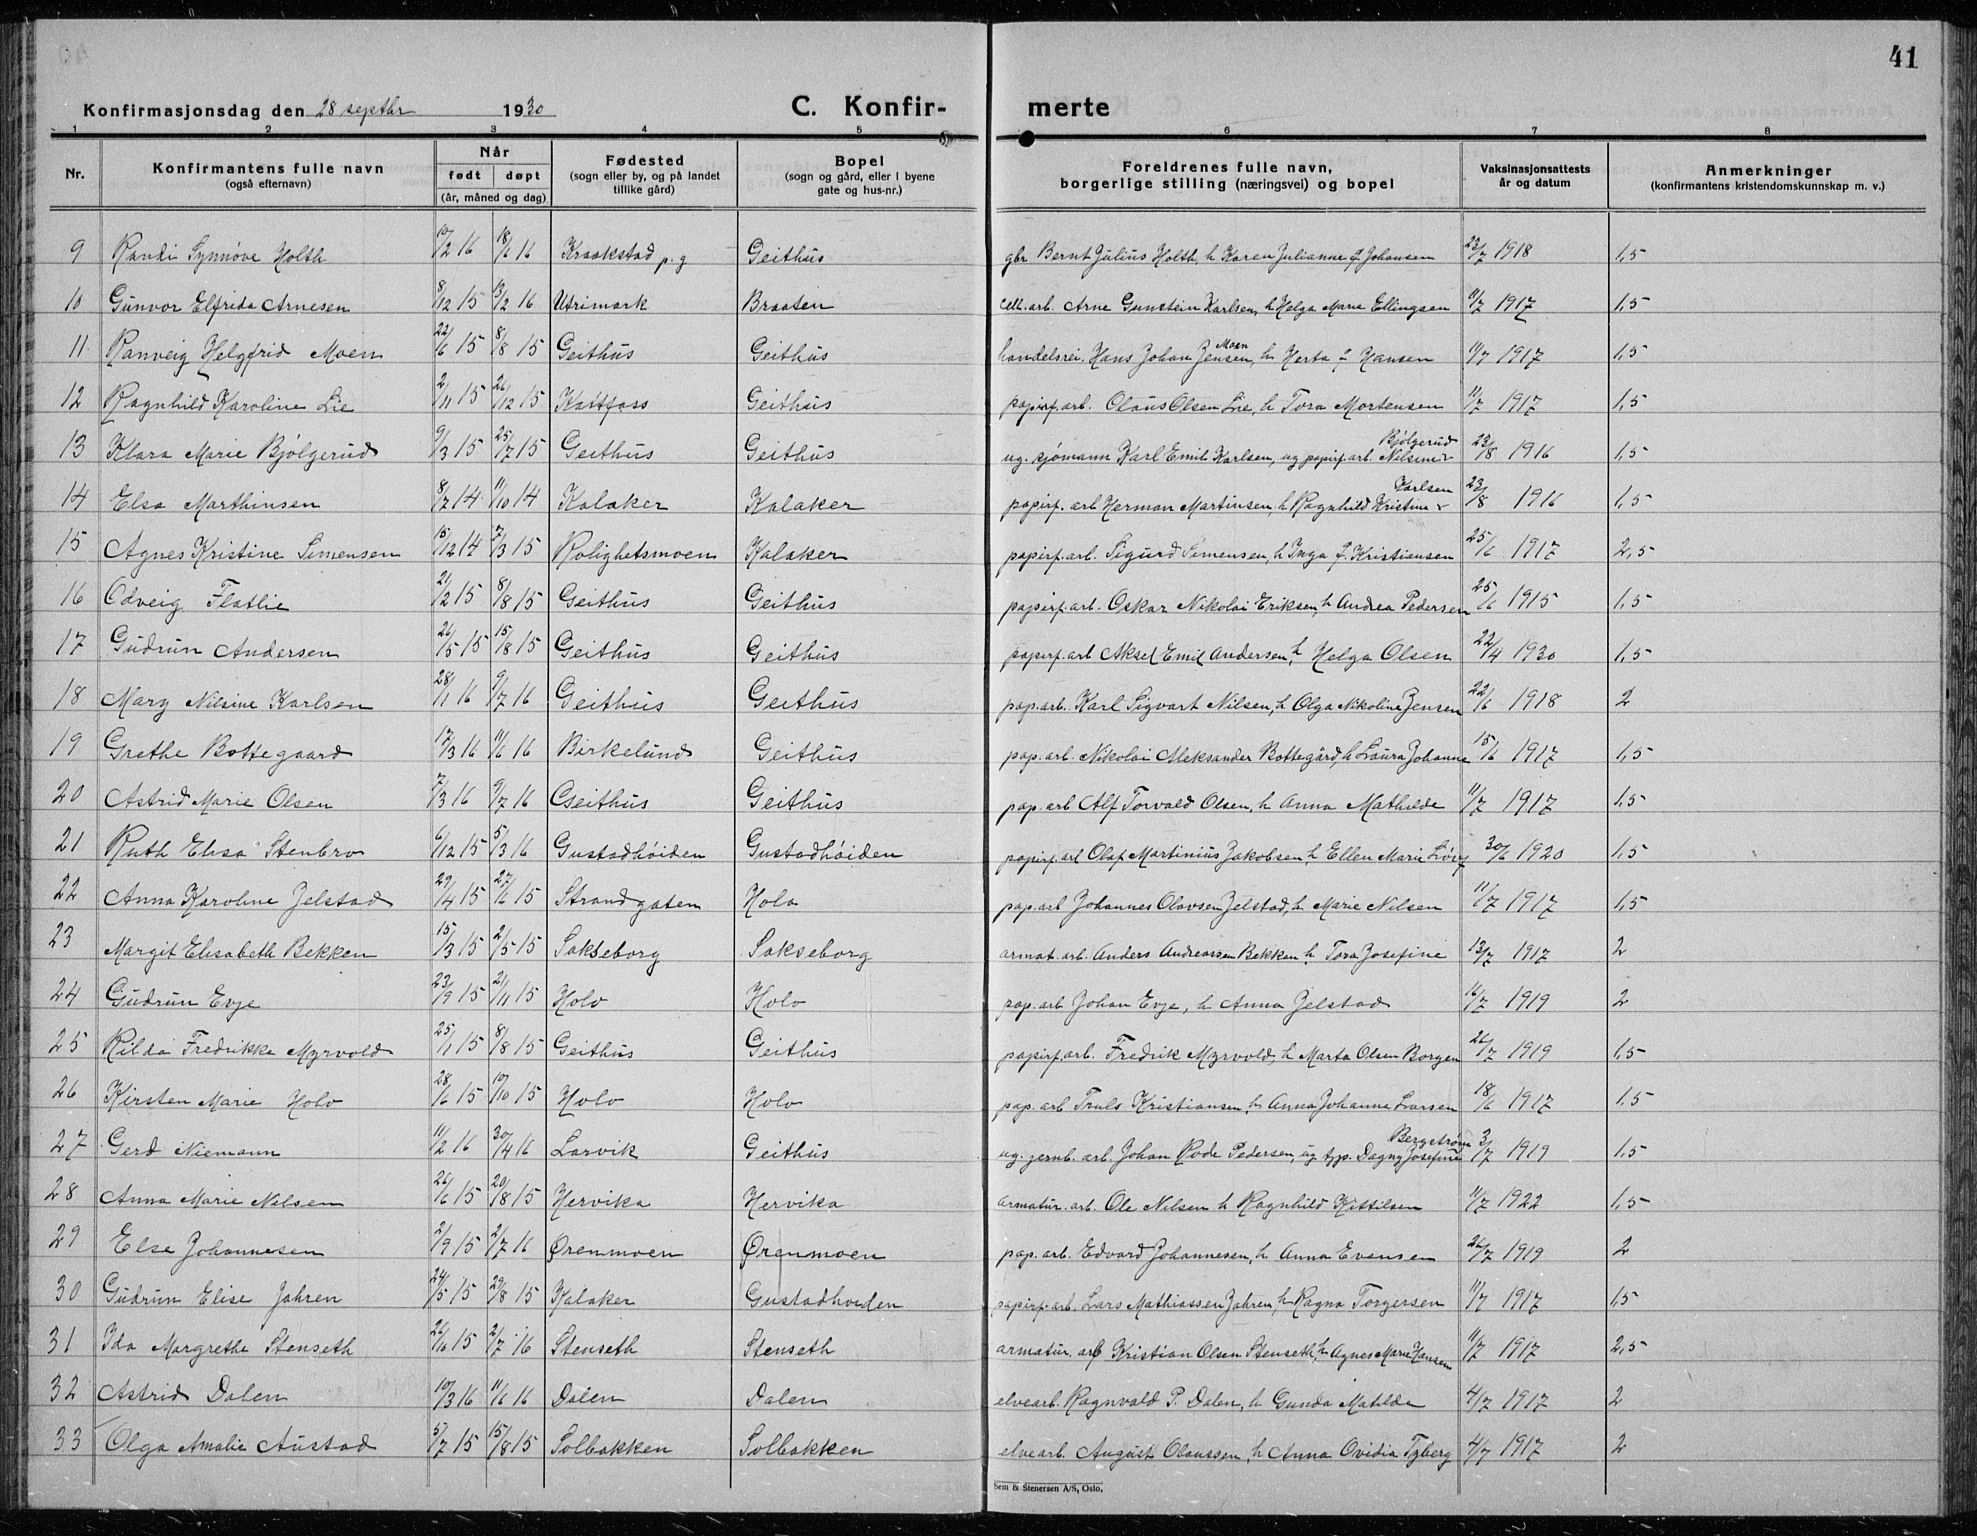 41
Konfirmasjonsdag den 28 septbr 1930 C. Konfir- merte
1 2 3 4 5 6 7 8
Nr. Konfirmantens fulle navn (også efternavn) Når født døpt (år, måned og dag) Fødested (sogn eller by, og på landet tillike gård) Bopel (sogn og gård, eller i byene gate og hus-nr.) Foreldrenes fulle navn, borgerlige stilling (næringsvei) og bopel Vaksinasjonsattests år og datum Anmerkninger (konfirmantens kristendomskunnskap m. v.)
9 Randi Synnøve Holth 10/2 16 18/6 16 Kraakstad p.g Geithus gbr Bernt Julius Holth, h Karen Julianne f Johansen 23/7 1918 1,5
10 Gunvor Elfrida Arnesen 8/12 15 13/2 16 Utrimark Braaten cell. arb. Arne Gunstein Karlsen, h Helga Marie Ellingsen 11/7 1917 1,5
11 Ranveig Helgfrid Moen 22/6 15 8/8 15 Geithus Geithus handelsrei. Hans Johan Jensen Moen, h Herta f Hansen 11/7 1917 1,5
12 Ragnhild Karoline Lie 2/11 15 26/12 15 Kattfoss Geithus papirf. arb. Olaus Olsen Lie, h Tora Mortensen 11/7 1917 1,5
13 Klara Marie Bjølgerud 9/3 15 25/7 15 Geithus Geithus ug. sjømann Karl Emil Karlsen, ug papirf. arb. Nilsine Bjølgerud 23/8 1916 1,5
14 Elsa Marthinsen 8/7 14 11/10 14 Kalaker Kalaker papirf. arb Herman Martinsen, h Ragnhild Kristine Karlsen 23/8 1916 1,5
15 Agnes Kristine Simensen 15/12 14 7/3 15 Rolighetsmoen Kalaker papirf. arb. Sigurd Simensen, h Inga f. Kristiansen 25/6 1917 2,5
16 Odveig Flatlie 21/2 15 8/8 15 Geithus Geithus papirf. arb. Oskar Nikolai Eriksen, h Andrea Pedersen 25/6 1915 1,5
17 Gudrun Andersen 26/5 15 15/8 15 Geithus Geithus papirf. arb Aksel Emil Andersen, h Helga Olsen 22/4 1930 1,5
18 Mary Nilsine Karlsen 28/1 16 9/7 16 Geithus Geithus pap. arb. Karl Sigvart Nilsen, h Olga Nikoline Jensen 22/6 1918 2
19 Grethe Bottegaard 17/3 16 11/6 16 Birkelund Geithus pap. arb. Nikolai Aleksander Bottegård, h Laura Johanne 15/6 1917 1,5
20 Astrid Marie Olsen 7/3 16 9/7 16 Geithus Geithus pap. arb Alf Torvald Olsen, h Anna Mathilde 11/7 1917 1,5
21 Ruth Elisa Stenbro 6/12 15 5/3 16 Gustadhøiden Gustadhøiden papirf. arb Olaf Martinius Jakobsen, h Ellen Marie 30/6 1920 1,5
22 Anna Karoline Jelstad 29/4 15 27/6 15 Strandgaten Holo pap. arb Johannes Olavsen Jelstad, h Marie Nilsen 11/7 1917 1,5
23 Margit Elisabeth Bekken 15/3 15 2/5 15 Sakseborg Sakseborg armat. arb. Anders Andreassen Bekken h Tora Josefine 13/7 1917 2
24 Gudrun Evje 23/9 15 21/11 15 Holo Holo pap. arb Johan Evje, h Anna Jelstad 16/7 1919 2
25 Rilda Fredrikke Myrvold 25/1 15 8/8 15 Geithus Geithus papirf. arb. Fredrik Myrvold, h Marta Olsen Borgen 26/7 1919 1,5
26 Kirsten Marie Holo 28/6 15 10/10 15 Holo Holo pap. arb Truls Kristiansen, h Anna Johanne Larsen 18/6 1917 1,5
27 Gerd Niemann 11/2 16 30/4 16 Larvik Geithus ug. jernb. arb. Johan Rode Pedersen, ug typ. Dagny Josefine Bergstrøm 3/7 1919 1,5
28 Anna Marie Nilsen 26/6 15 20/8 15 Hervika Hervika armatur. arb. Ole Nilsen h Ragnhild Kittilsen 11/7 1922 1,5
29 Else Johannesen 2/9 15 2/7 16 Ørenmoen Ørenmoen pap. arb. Edvard Johannesen, h Anna Evensen 26/7 1919 2
30 Gudrun Elise Jahren 24/5 15 29/8 15 Kalaker Gustadhøiden papirf. arb. Lars Mathiassen Jahren, h Ragna Torgersen 11/7 1917 1,5
31 Ida Margrethe Stenseth 26/10 15 2/7 16 Stenseth Stenseth armatur. arb Kristian Olsen Stenseth, h Agnes Marie Hansen 11/7 1917 2,5
32 Astrid Dalen 10/3 16 11/6 16 Dalen Dalen elvearb. Ragnvald P. Dalen, h Gunda Matilde 4/7 1917 2
33 Olga Amalie Austad 5/7 15 15/8 15 Solbakken Solbakken elvearb. August Olaussen, h Anna Ovidia Tyberg 4/7 1917 2
Sem & Stenersen A/S, Oslo.